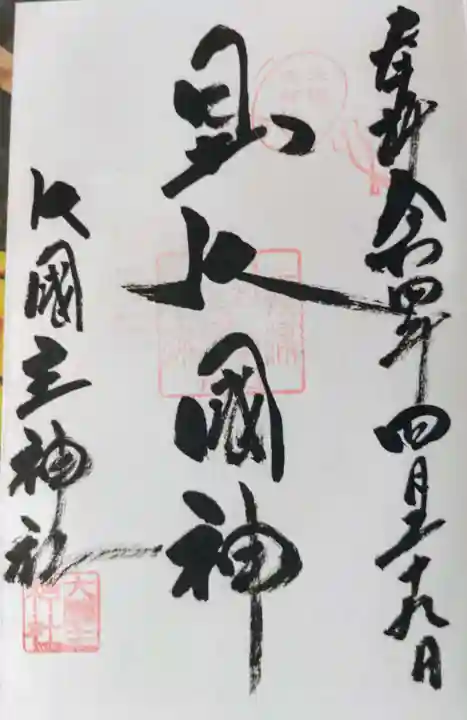 奉拝 令和四年 四月二十九日
日出大國神
大國主神社
大國主
神社